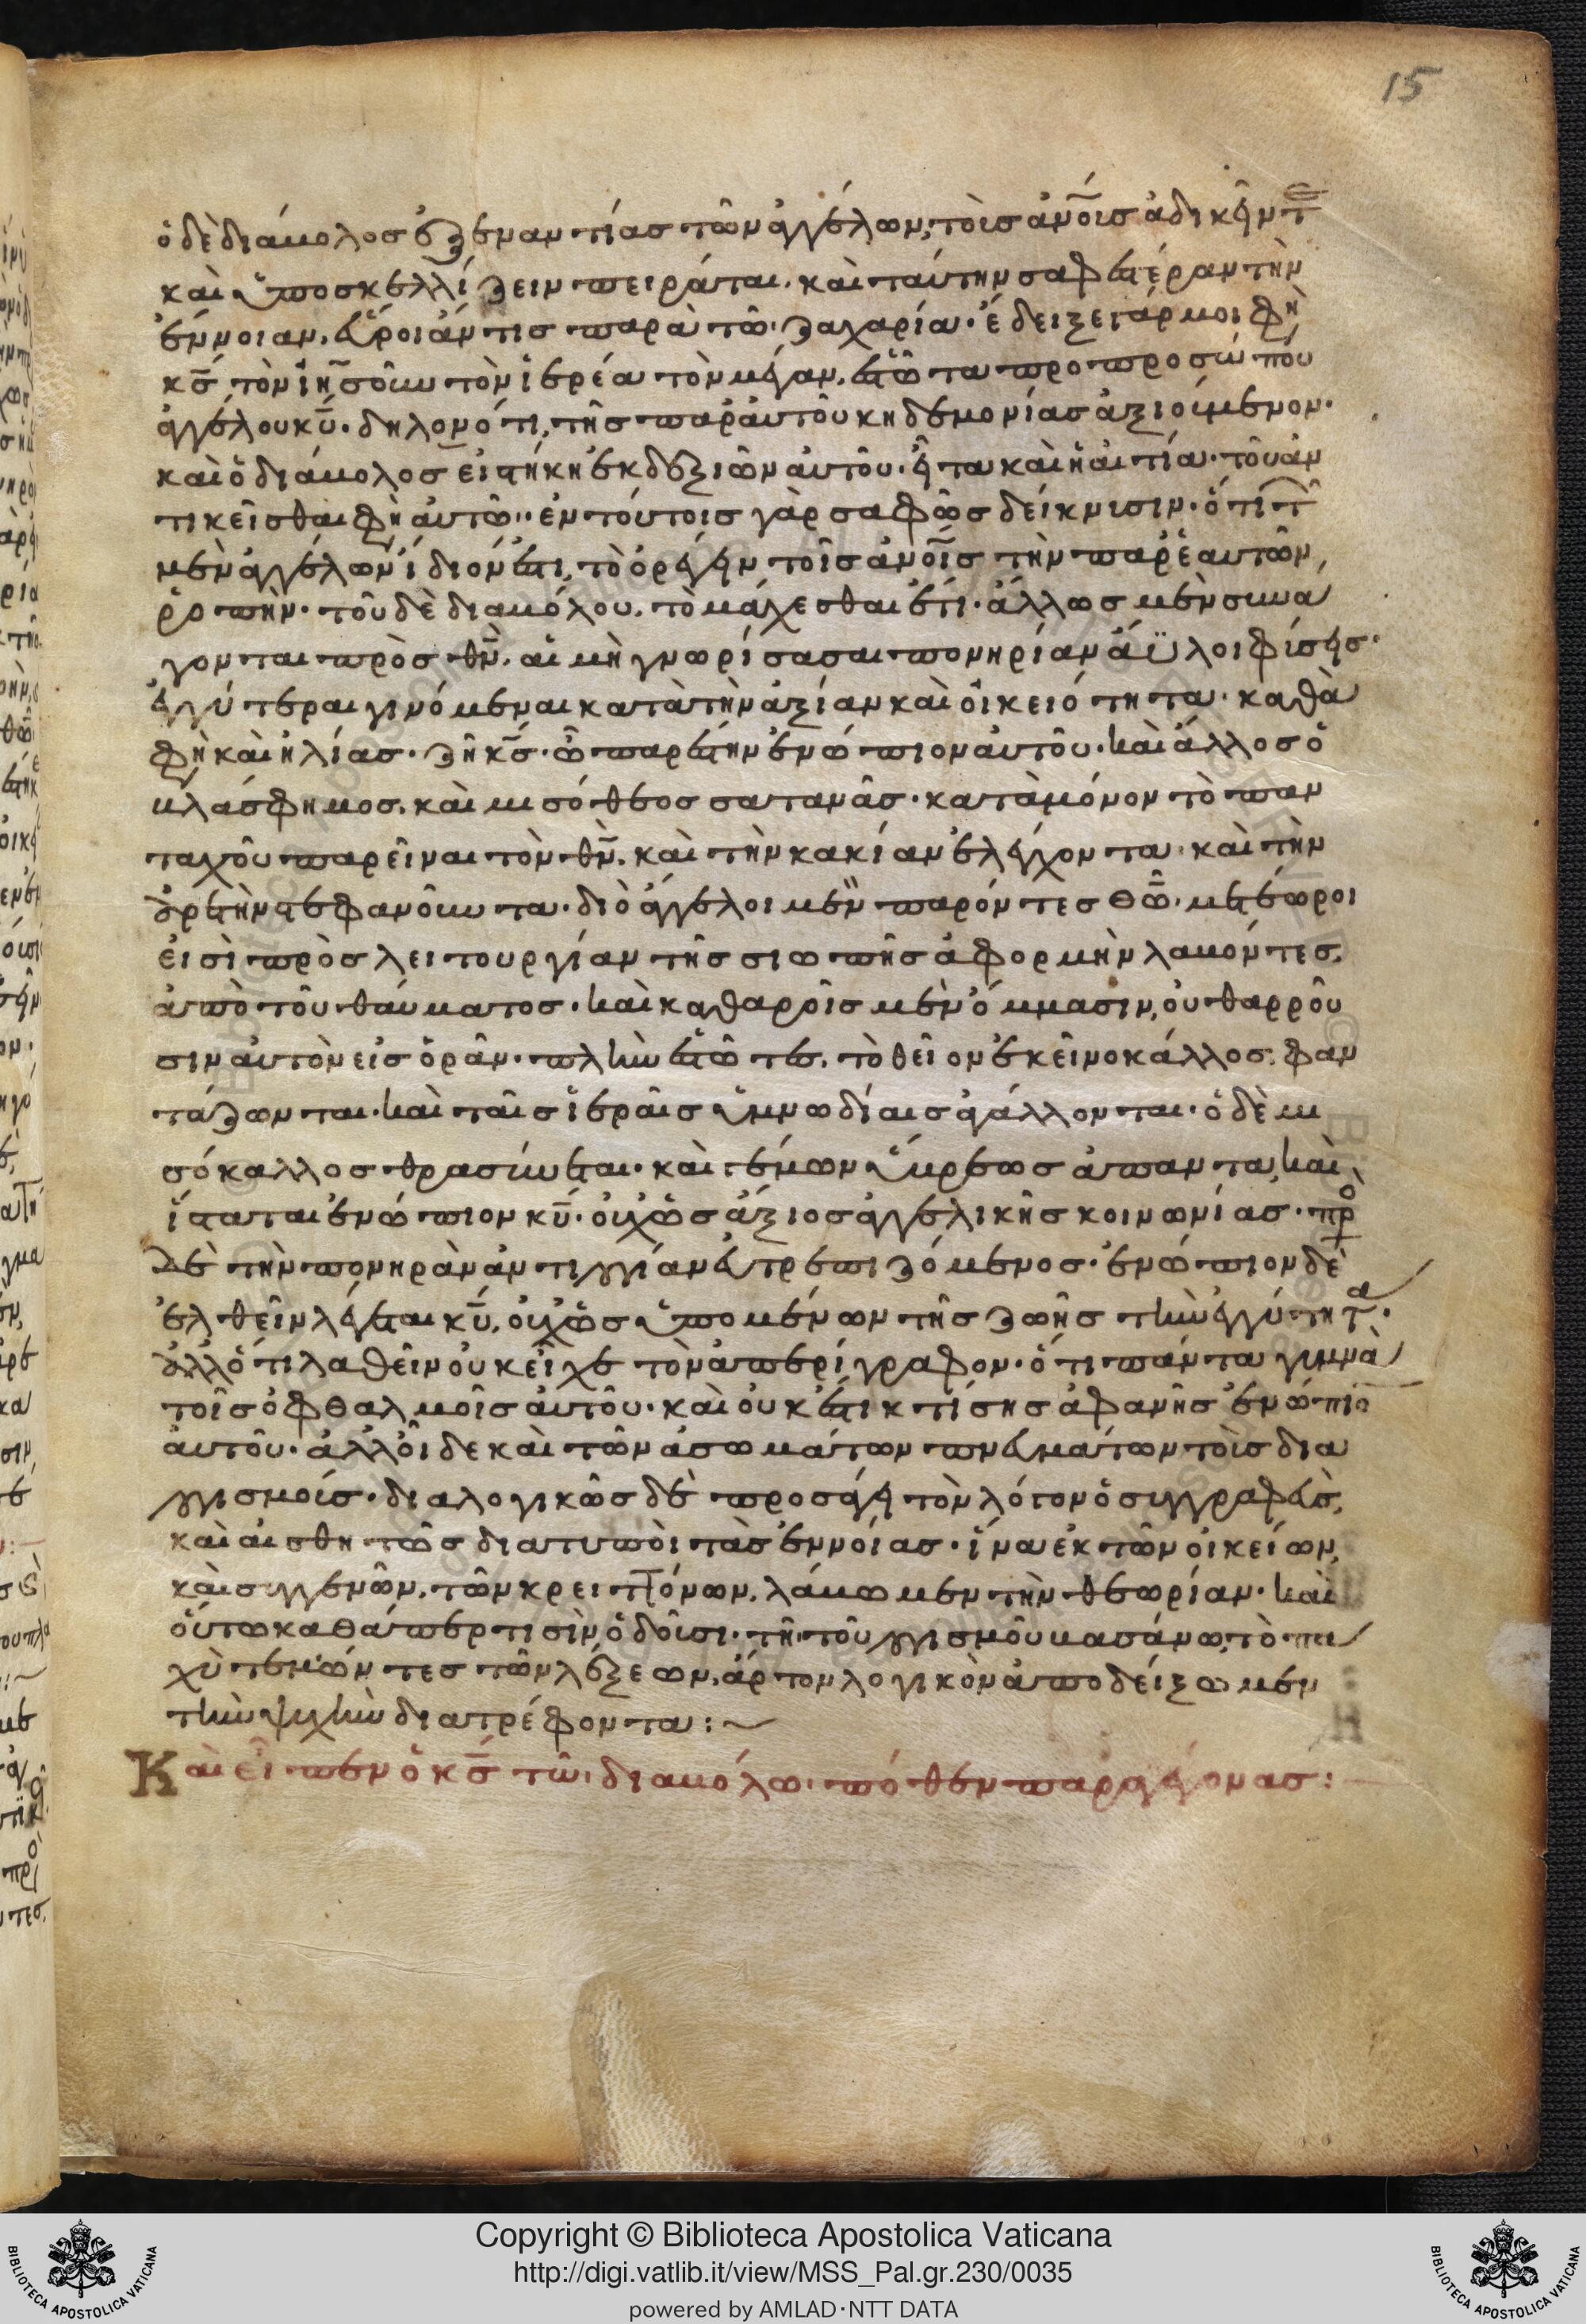 15
ὁ δὲ διάβολος ἐξεναντίας τῶν ἀγγέλων, τοῖς ἀνοις ἀδικεῖν τε
καὶ ὑποσκελλίζειν πειράται. καὶ ταύτην σαφεστέραν τὴν
ἔννοιαν, εὕροι ἄν τις παρὰ τῶ ζαχαρία. ἔδειξε γάρ μοι φη
κς τὸν ἰησοῦν τὸν ἱερέα τὸν μέγαν, ἑστῶτα προ προσώπου
ἀγγέλου κυ. δηλονότι, τῆς παρ αὐτοῦ κηδεμονίας ἀξιούμενον.
καὶ ὁ διάβολος εἱστήκη ἐκ δεξιῶν αὐτοῦ. εἶτα καὶ ἡ αἰτία. τοῦ ἀν
τικεῖσθαι φη αὐτῶ. ἐν τούτοις γὰρ σαφῶς δείκνυσιν. ὅτι τῶν
μὲν ἀγγέλων ἴδιόν ἐστι, τὸ ὀρέγειν τοῖς ἀνοις τὴν παρ ἑαυτῶν,
ῥοπὴν. τοῦ δὲ διαβόλου, τὸ μάχεσθαι ἐστι. ἄλλως μὲν συνά
γονται πρὸς θν, αἱ μὴ γνωρίσασαι πονηρίαν ἄϋλοι φύσεις.
ἐγγύτεραι γινόμεναι κατὰ τὴν ἀξίαν καὶ οἰκειότητα. καθὰ
φη καὶ ἠλίας. ζῆ κς. ὧ παρέστην ἐνώπιον αὐτοῦ. καὶ ἄλλος ὁ
βλάσφημος, καὶ μισόθεος σατανᾶς. κατὰ μόνον τὸ παν
ταχοῦ παρεῖναι τὸν θν, καὶ τὴν κακίαν ἐλέγχοντα. καὶ τὴν
ἀρετὴν στεφανοῦντα. διὸ ἄγγελοι μὲν παρόντες θω. μετέωροι
εἰσὶ πρὸς λειτουργίαν τῆς σιωπῆς ἀφορμὴν λαβόντες,
ἀπὸ τοῦ θαύματος. καὶ καθαροῖς μὲν ὄμμασιν, οὐ θαρροῦ
σιν αὐτὸν εἰσορᾶν. πλὴν ἑστῶτες, τὸ θεῖον ἐκεῖνο κάλλος. φαν
τάζωνται. καὶ ταῖς ἱεραῖς ὑμνωδίαις ἀγάλλονται. ὁ δὲ μι
σόκαλλος θρασύνεται. καὶ γέμων ὕβρεως ἀπαντᾶ, καὶ
ἵσταται ἐνώπιον κυ. οὐχ ὡς ἄξιος ἀγγελικῆς κοινωνίας. πρ
δὲ τὴν πονηρὰν ἀντιλογίαν εὐτρεπιζόμενος. ἐνώπιον δὲ
ἐλθεῖν λέγεται κυ, οὐχ ὡς ὑπομένων τῆς ζωῆς τὴν ἐγγύτητα.
ἀλλ ὅτι λαθεῖν οὐκ εἶχε τὸν ἀπερίγραφον. ὅτι πάντα γυμνὰ
τοῖς ὀφθαλμοῖς αὐτοῦ. καὶ οὐκ ἔστι κτίσης ἀφανῆς ἐνώπιον
αὐτοῦ. ἀλλ οἶδε καὶ τῶν ἀσωμάτων πνευμάτων τοῖς δια
λογισμοίς. διαλογικῶς δὲ προσάγει τὸν λόγον ὁ συγγραφεὺς,
καὶ αἰσθητῶς διατυποῖ τὰς ἐννοίας. ἵνα ἐκ τῶν οἰκείων,
καὶ συγγενῶν, τῶν κρειττόνων, λάβωμεν τὴν θεωρίαν. καὶ
οὕτω καθάπερ τισὶν ὁδοῦσι. τῆ τοῦ λογισμοῦ βασάνω, τὸ πα
χὺ τεμόντες τῶν λέξεων, ἄρτον λογικὸν ἀποδείξωμεν
τὴν ψυχὴν διατρέφοντα:~
Καὶ εἶπεν ὁ κς τῶ διαβόλω. πόθεν παραγέγονας:
Copyright © Biblioteca Apostolica Vaticana
http://digi.vatlib.it/view/MSS_Pal.gr.230/0035
powered by AMLAD·NTT DATA
BIBLIOTECA APOSTOLICA VATICANA
BIBLIOTECA APOSTOLICA VATICANA